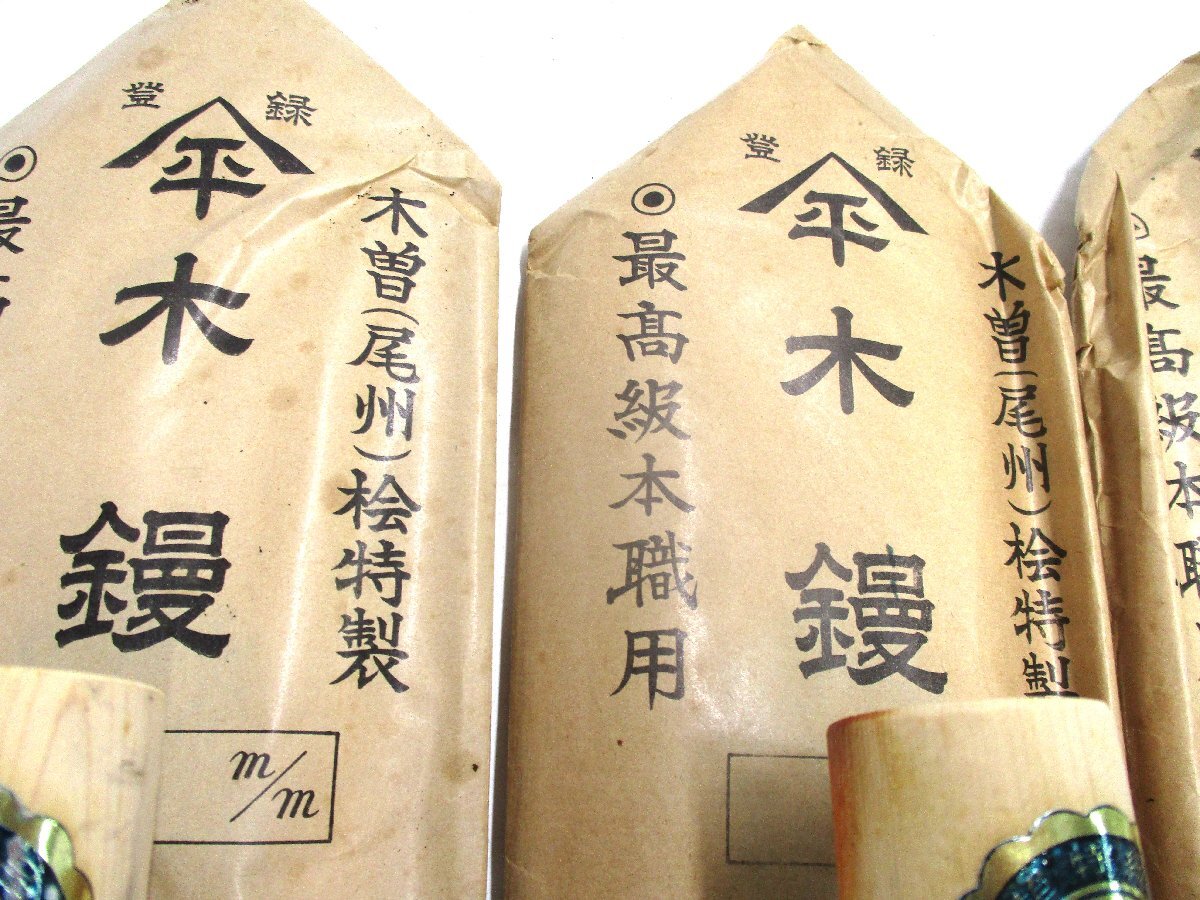 登録
平
木鏝
木曽(尾州)桧特製
最高
m/m
登録
平
木鏝
木曽(尾州)桧特製
◉最高級本職用
最高級本職